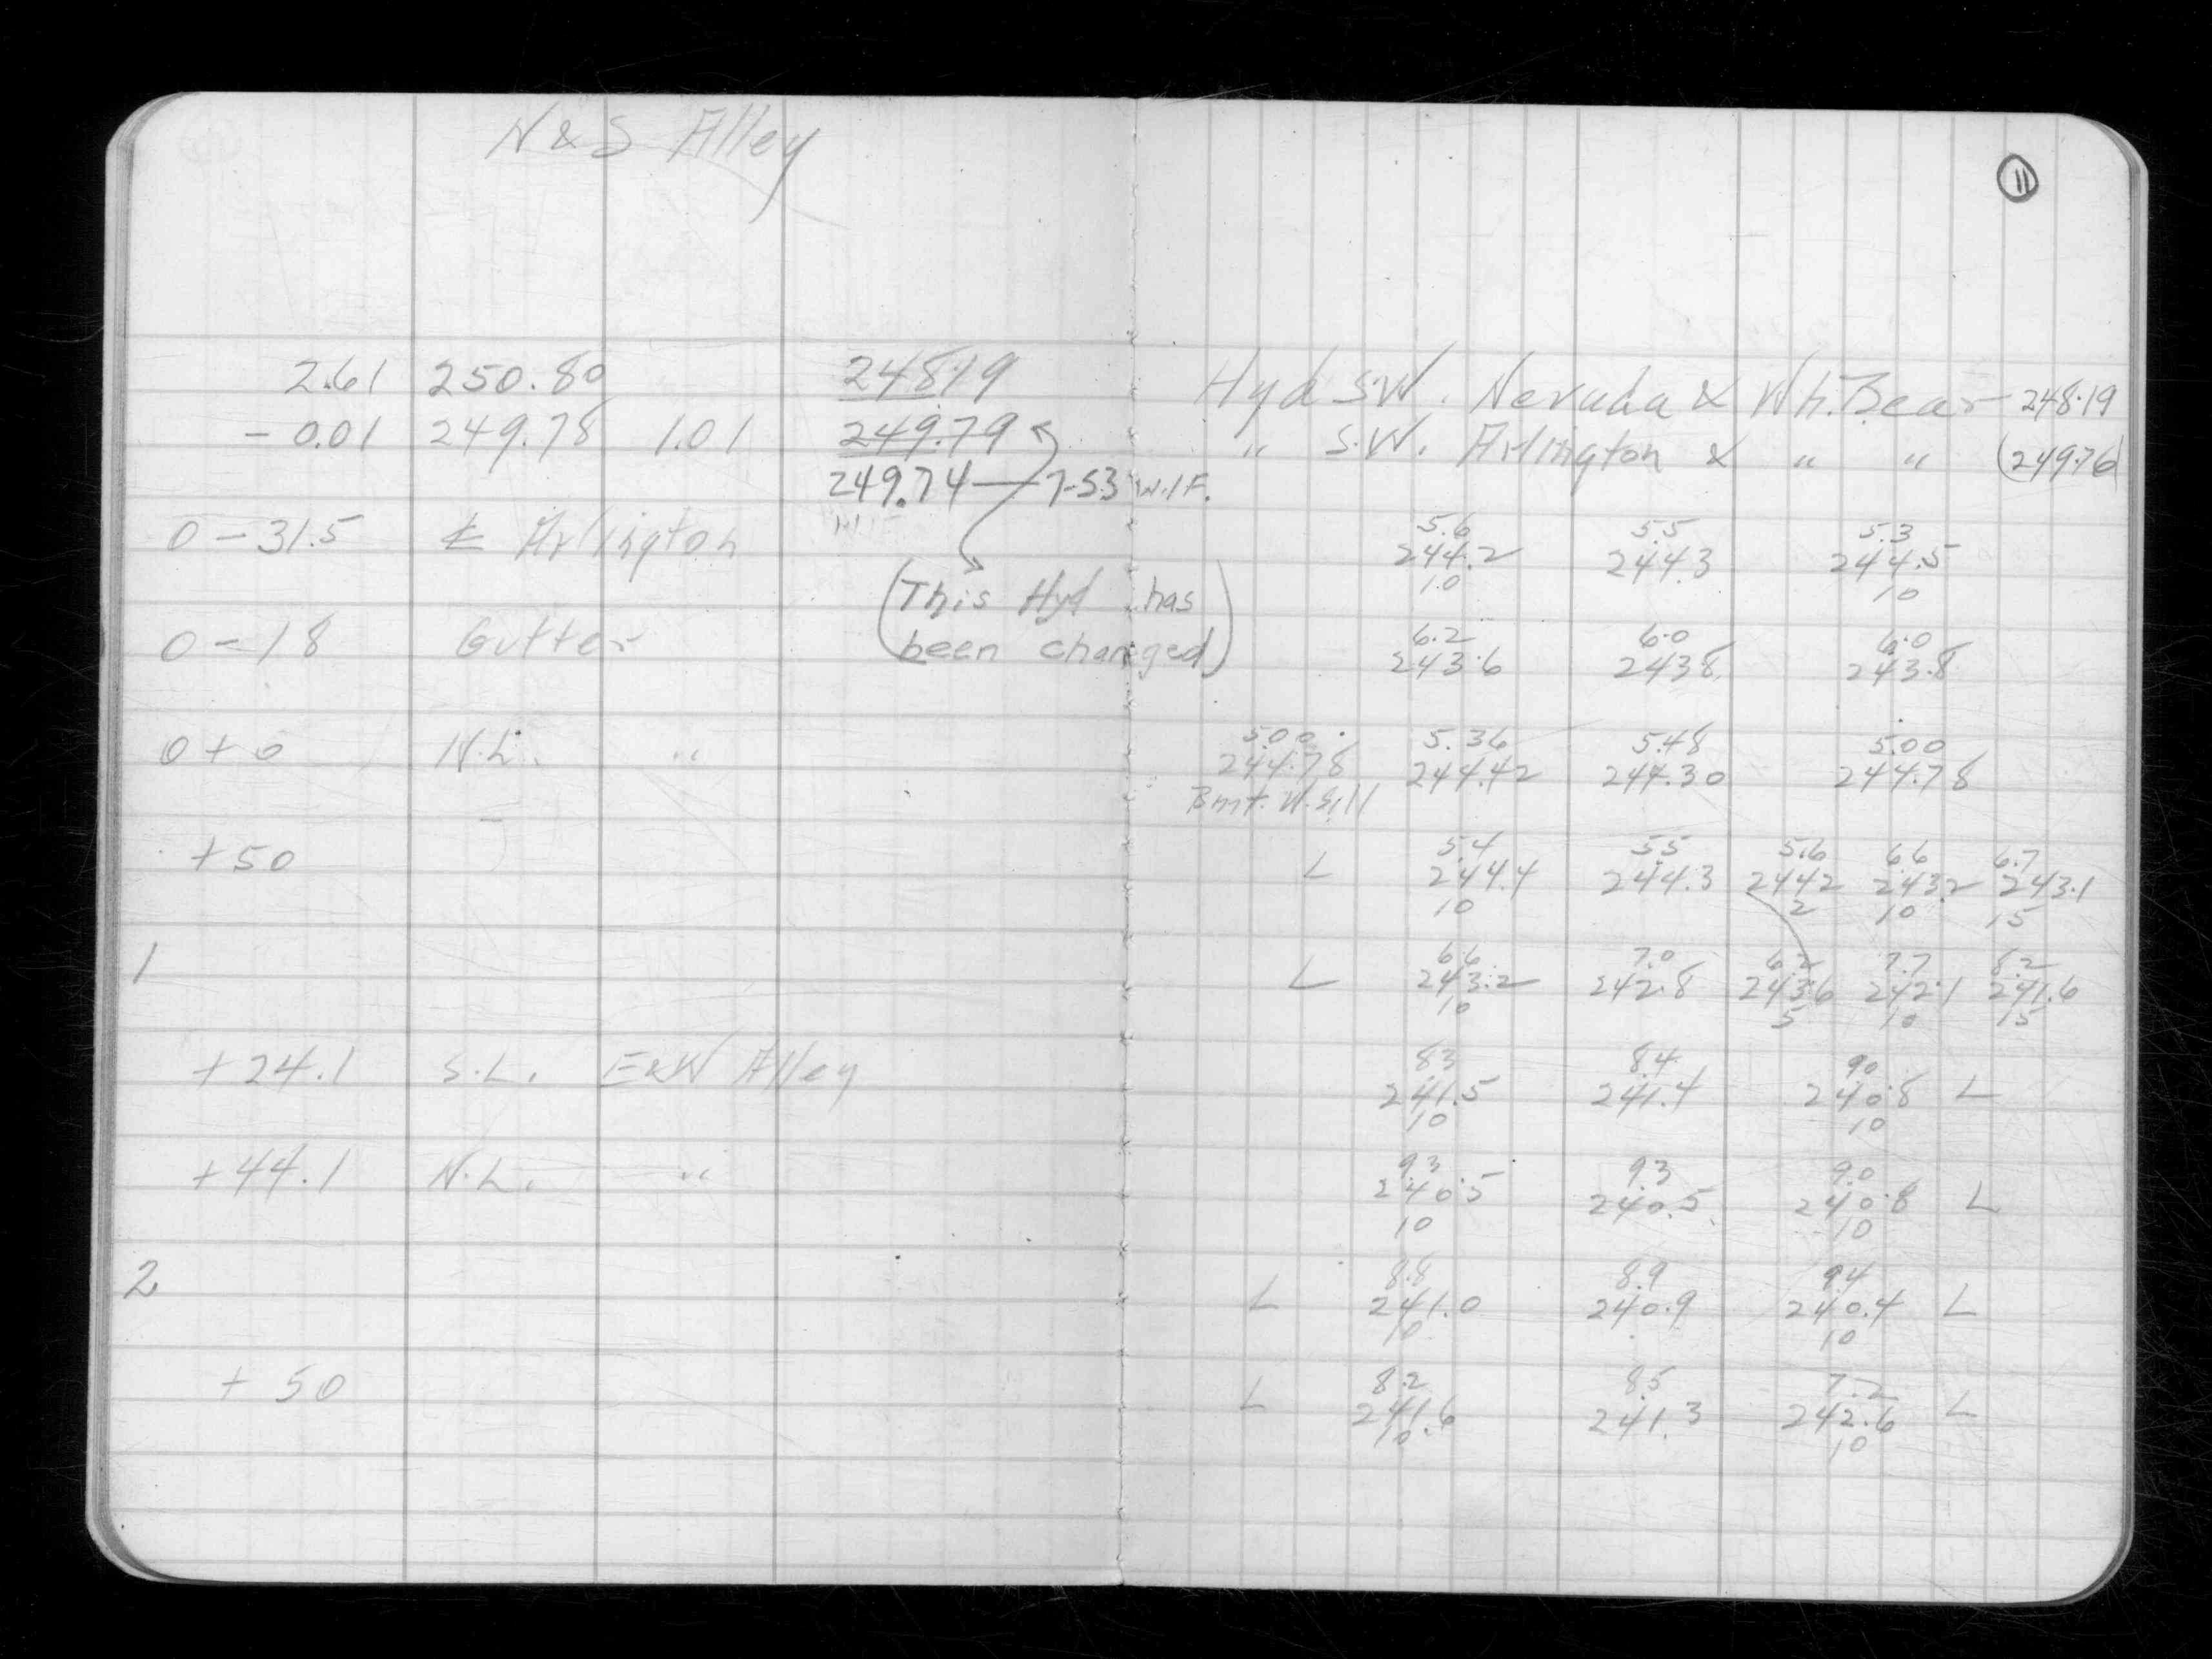 N & S Alley
11
2.61 250.80 248.19 Hyd S.W. Nevada & Wh. Bear 248.19
- 0.01 249.78 1.01 249.79 " S.W. Arlington & " " (249.76)
249.74 7-53 W.I.F.
5.6 5.5 5.3
0 - 31.5 ℄ Arlington 244.2 244.3 244.5
10 10
(This Hyd has
been changed)
6.2 6.0 6.0
0 - 18 Gutter 243.6 243.8 243.8
5.00 5.36 5.48 5.00
0 + 0 N.L. " 244.78 244.42 244.30 244.78
Bmt. W. Sill
5.4 5.5 5.6 6.6 6.7
+50 L 244.4 244.3 244.2 243.2 243.1
10 2 10 15
6.6 7.0 6.2 7.7 8.2
1 L 243.2 242.8 243.6 242.1 241.6
10 5 10 15
8.3 8.4 9.0
+24.1 S.L. E&W Alley 241.5 241.4 240.8 L
10 10
9.3 9.3 9.0
+44.1 N.L. " 240.5 240.5 240.8 L
10 10
8.8 8.9 9.4
2 L 241.0 240.9 240.4 L
10 10
8.2 8.5 7.2
+ 50 L 241.6 241.3 242.6 L
10 10